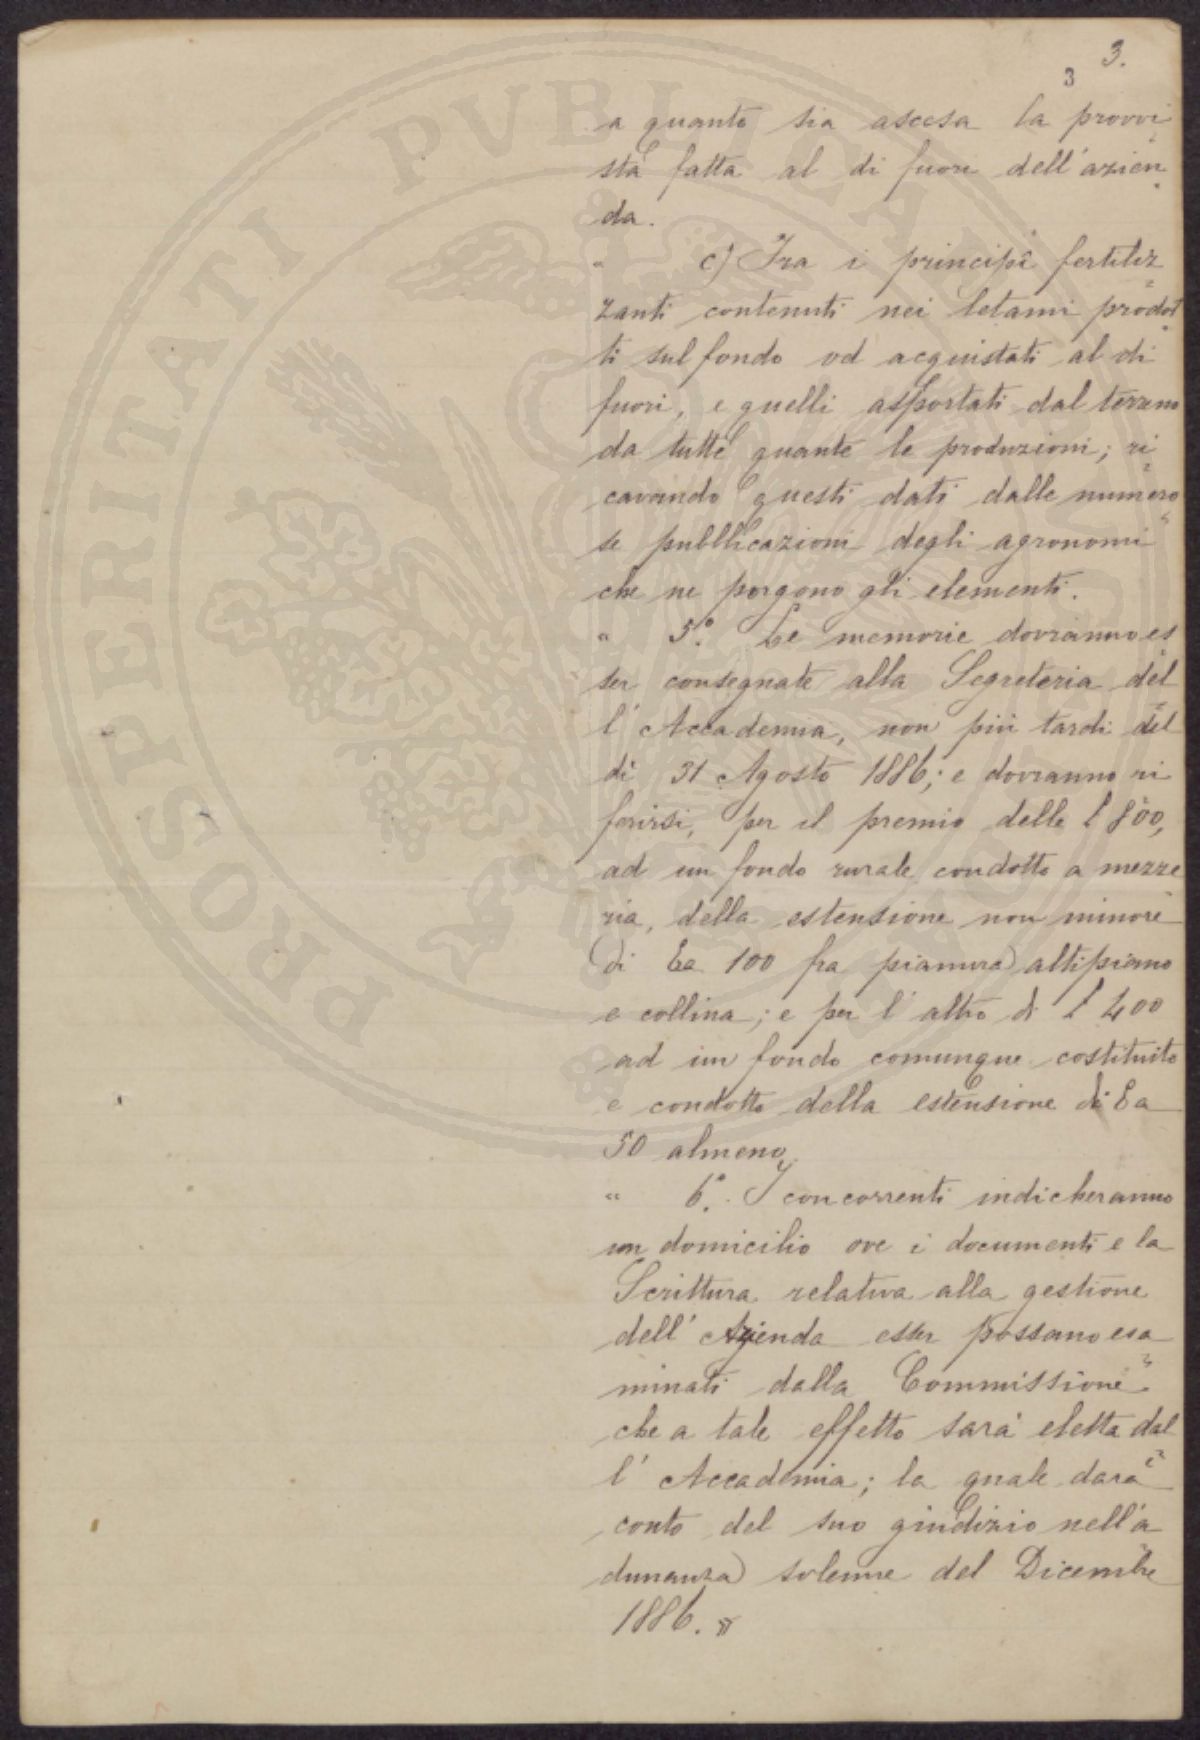 3.
3
a quanto sia ascesa la provvi
sta fatta al di fuori dell'azien
da.
" c) Tra i principî fertiliz
zanti contenuti nei letami prodot
ti sul fondo od acquistati al di
fuori, e quelli asportati dal terreno
da tutte quante le produzioni; ri
cavando questi dati dalle numero
se pubblicazioni degli agronomi
che ne porgono gli elementi.
" 5.° Le memorie dovranno es
ser consegnate alla Segreteria del
l'Accademia, non più tardi del
dì 31 Agosto 1886; e dovranno ri
ferirsi, per il premio delle £ 800,
ad un fondo rurale condotto a mezze
ria, della estensione non minore
di Ea 100 fra pianura altipiano
e collina; e per l'altro di £ 400
ad un fondo comunque costituito
e condotto della estensione di Ea
50 almeno.
" 6.° I concorrenti indicheranno
un domicilio ove i documenti e la
Scrittura relativa alla gestione
dell'Azienda esser possano esa
minati dalla Commissione
che a tale effetto sarà eletta dal
l'Accademia; la quale darà
conto del suo giudizio nell'a
dunanza solenne del Dicembre
1886. »
PROSPERITATI PVBLICAE